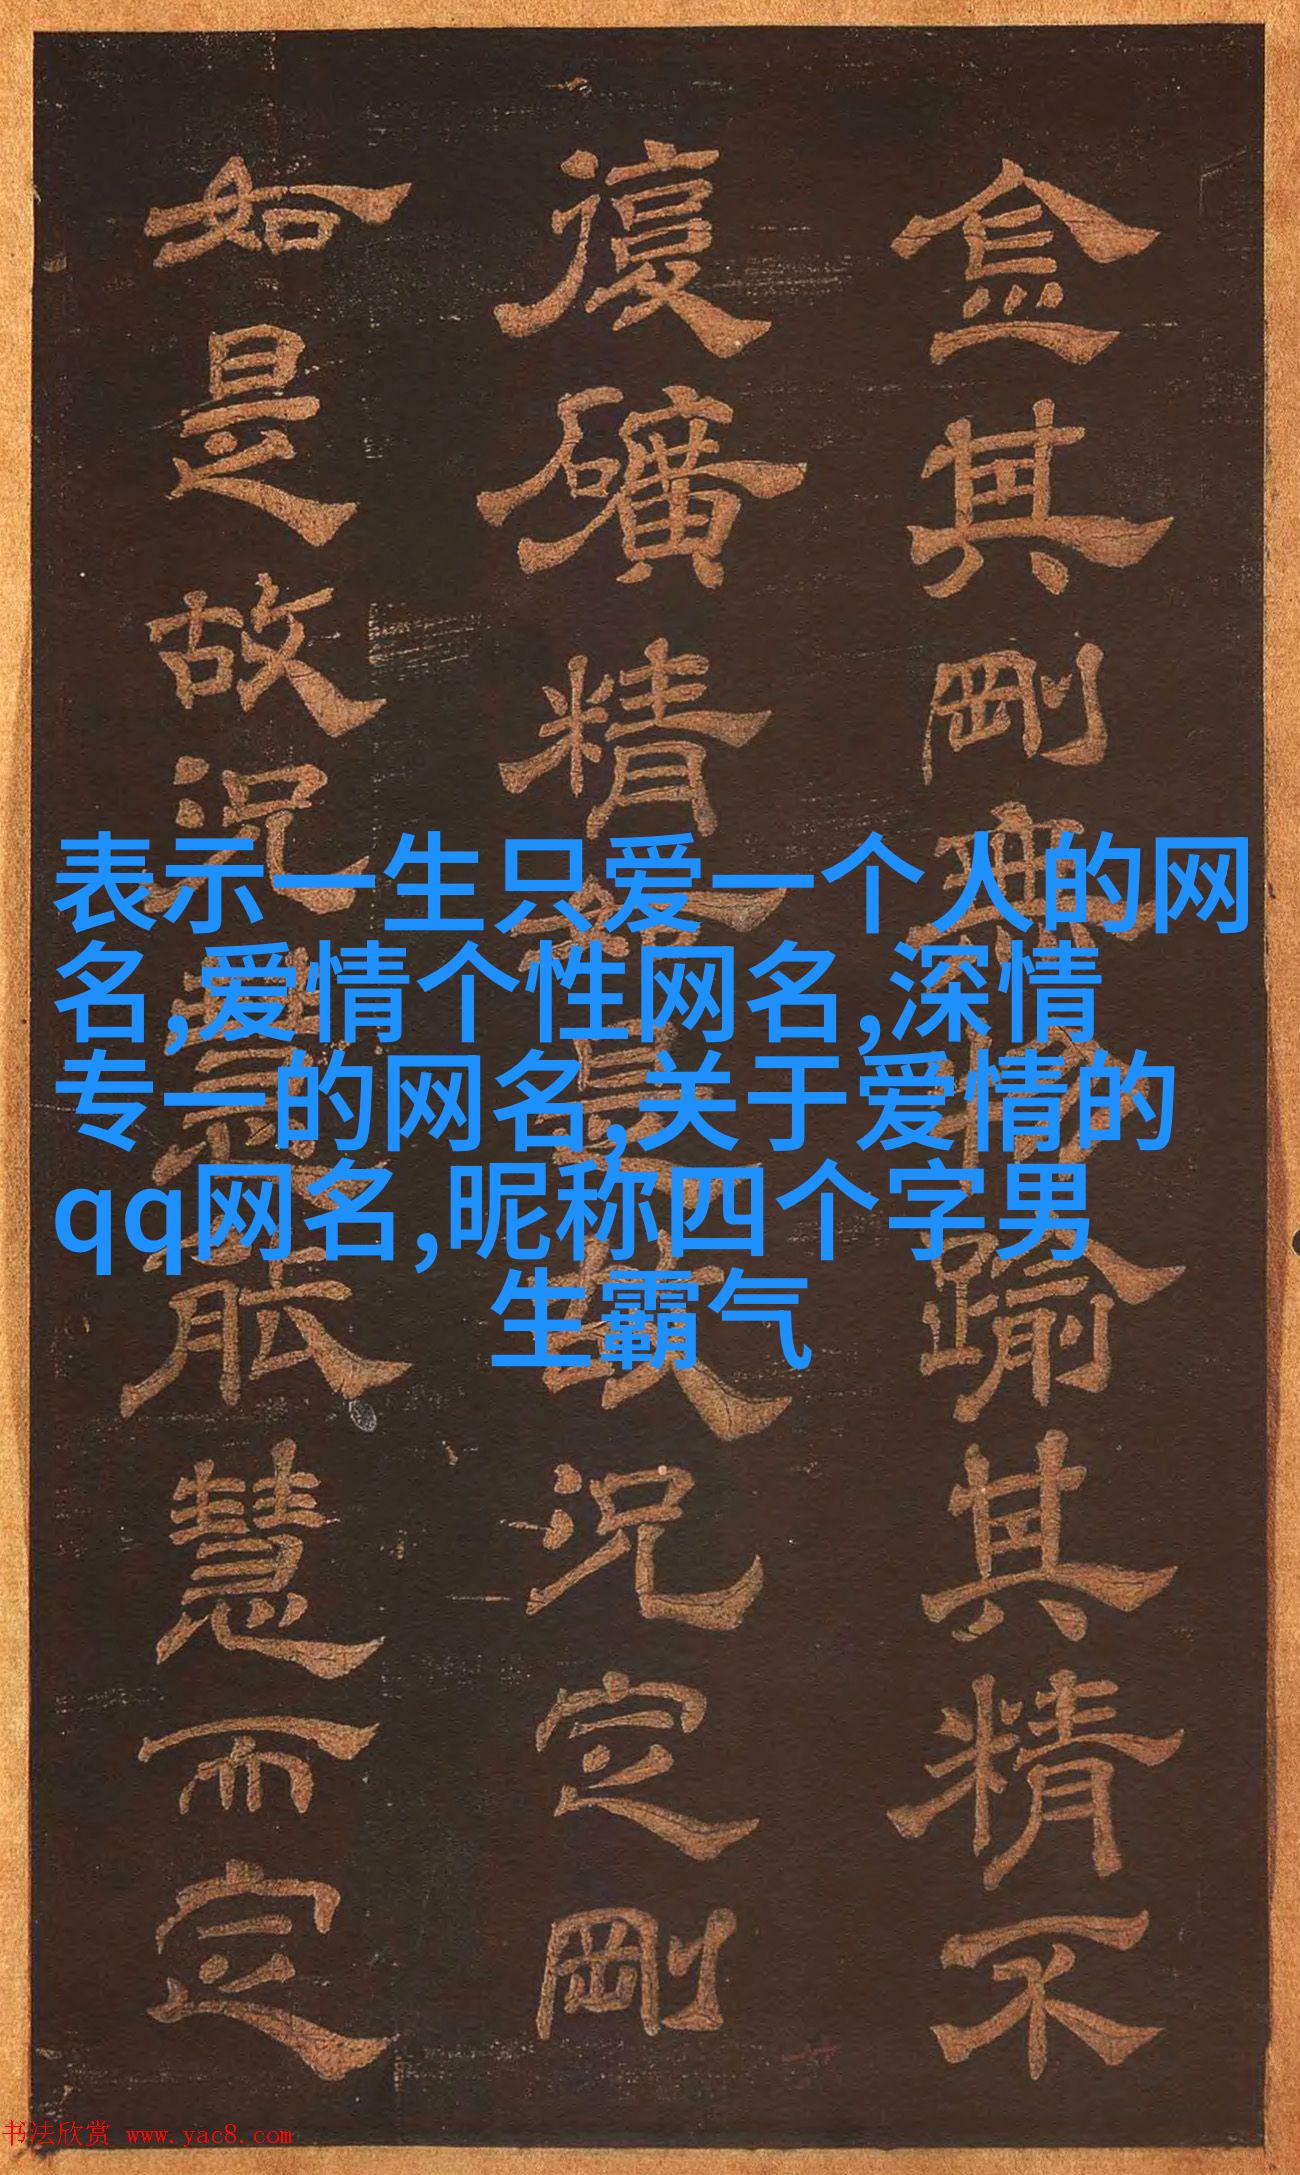 其剛無踰其精不
復礦精故況定剛
如是故況能慧而定
表示一生只爱一个人的网
名,爱情个性网名,深情
专一的网名,关于爱情的
qq网名,昵称四个字男
生霸气
书法欣赏 www.yac8.com